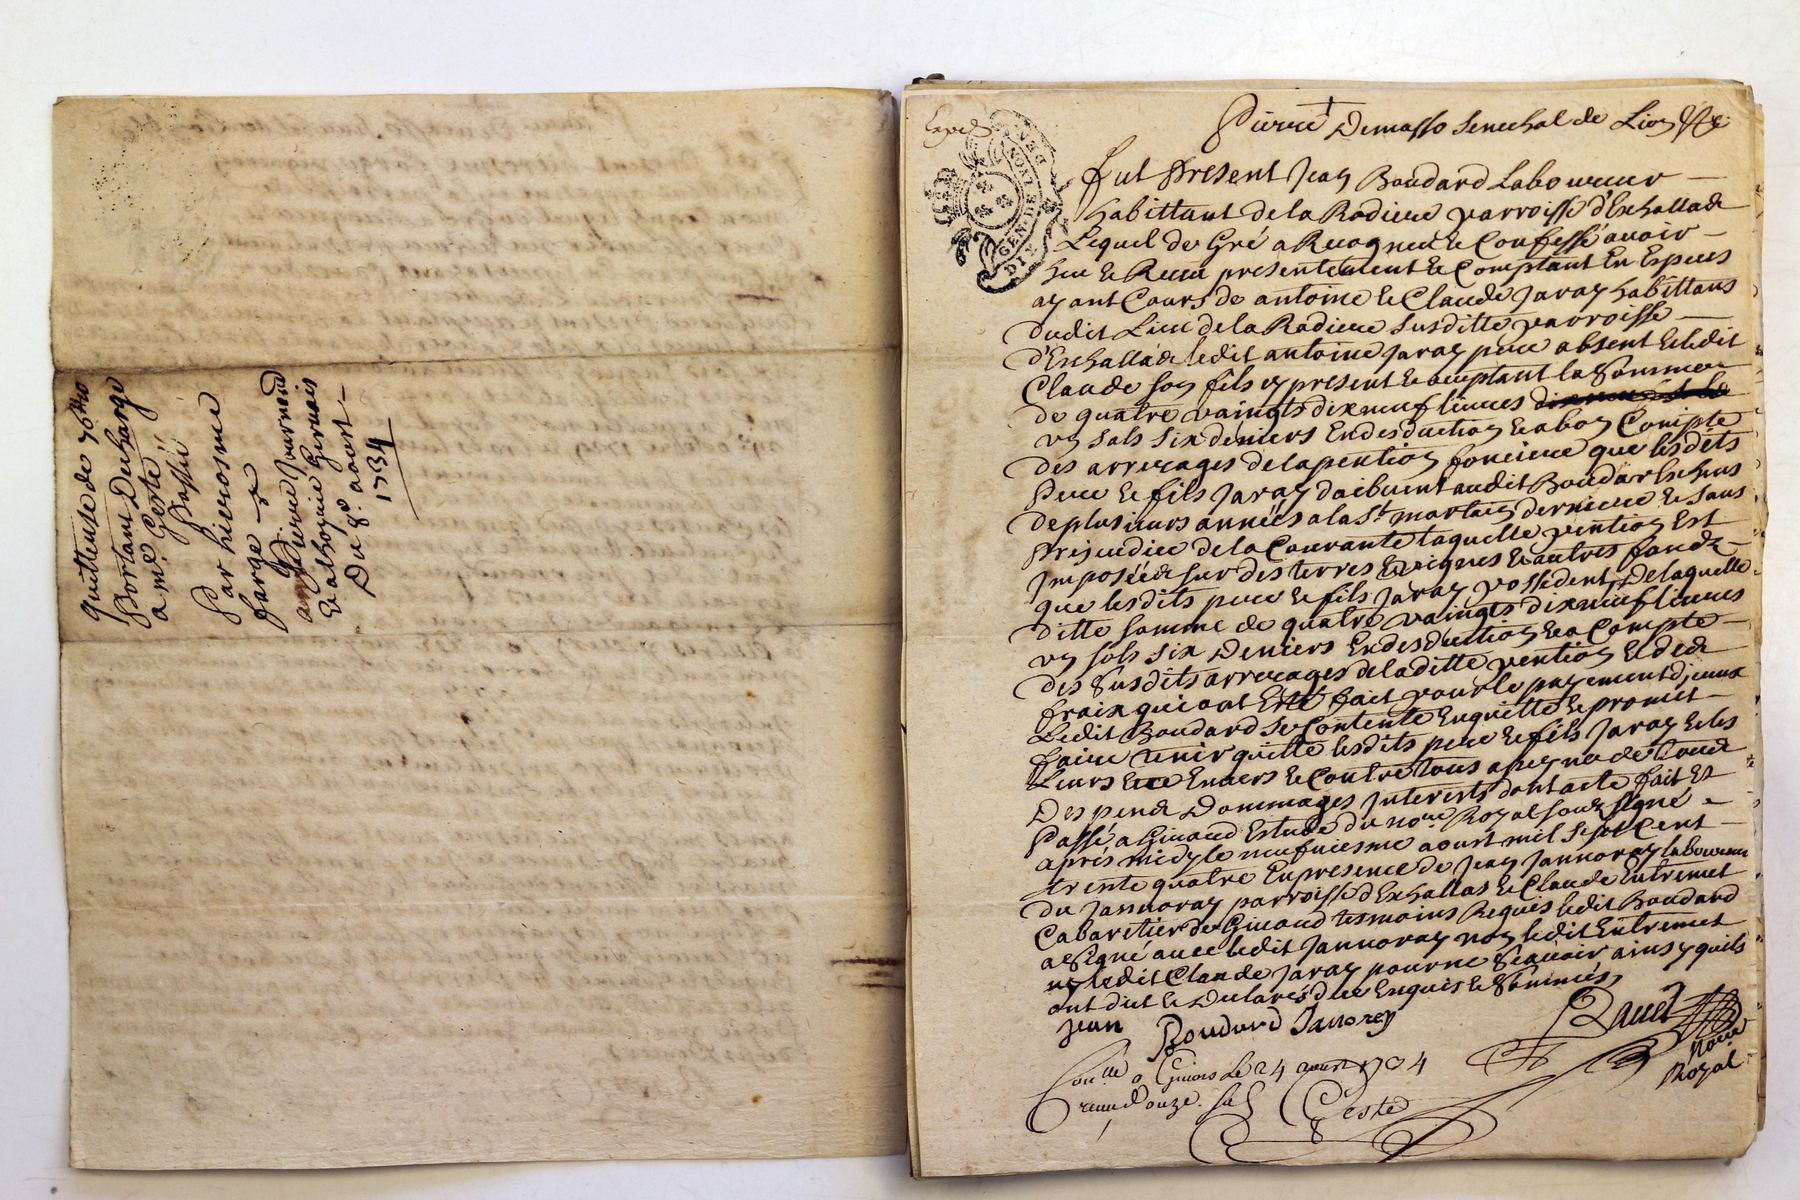 quittense de 76ᵗᵗ 10
Portant Decharge
a mᵉ Gesté
Passée
Par hierosme
farge &
Pierre journoud
et alboynie Gervais
Du 8ᵉ aoust
1734
Exped
GEN. DE LYON
Pierre Demasso Senechal de Lion &c
Fut Present Jean Boudard Laboureur
habittant de la Rodiere parroisse d'Exhallas
Lequel de Gré a Recogneu et Confessé avoir
heu et Receu presentement et Comptant En Especes
ayant Cours de antoine et Claude Jaray habittans
dudit Lieu de la Rodiere susditte parroisse
d'Exhallas ledit antoine Jaray pere absent et ledit
Claude son fils cy present et aceptant la Somme
de quatre vaingts dix neuf livres
un sols six deniers En desduction et a bon Compte
des arrerages de la pention fonciere que lesdits
Pere et fils Jaray doibvent audit Boudar Escheus
de plusieurs années a la St martin derniere et sans
Prejudice de la Courante laquelle pention Est
Imposée sur des terres vignes et autres fonds
que lesdits pere et fils Jaray possedent, De laquelle
ditte somme de quatre vaingts dix neuf livres
un sols six Deniers En desduction et a Compte
des susdits arrerages de laditte pention et de
fraix qui ont Esté fait pour le payement d'jceux
Ledit Boudard se Contente En quitte et promet
faire tenir quitte lesdits pere et fils Jaray et les
Leurs Envers et Contre tous a peyne de tous
Despends Dommages Interests dont acte fait Et
Passé a Givord Estude du noᵉʳᵉ Royal sousigné
apres midy le neufviesme aoust mil sept Cent
trente quatre En presence de Jean Jannoray laboureur
du Jannoray parroisse d'Exhallas et Claude Entremet
Cabaretier de Givord tesmoins Requis ledit Boudard
a Signé avec ledit Jannoray non ledit Entremet
ny ledit Claude Jaray pour ne Scavoir ainsy quils
ont dict et Declaré de ce Enquis et Sommés,
jean Boudard Janorey
noire
Royal
Conllé a Givors Le 24 aoust 1734
receu douze sols Gesté